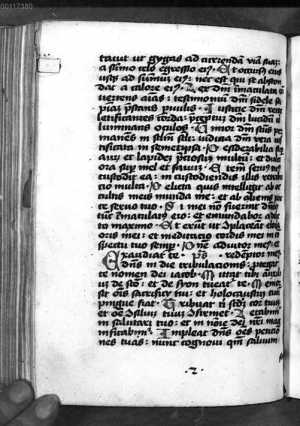 00117380
tavit ut gygas ad currendā viā suā:
a sūmo celo egressio eiꝰ. Et occursꝰ eiꝰ
usqꝫ ad sūmū eiꝰ: nec est qui se abscon
dat a calore eiꝰ. Lex dnī īmaculata cō
vertens aīas: testimoniū dnī fidele sa
piam p̄stans pvulis. Iusticie dnī recte
letificantes corda: p̄ceptū dnī lucidū il
luminans oculos. Timor dnī sctūs per
manēs ī sclm scli: iudicia dnī vera ius
tificata in semetipsa. Desiderabilia sup
aurū et lapidē p̄ciosū multū: et dulci
ora sup mel et favum. Etem servꝰ tuꝰ
custodit ea: in custodiendis illis retribu
cio multa. Delicta quis intelligit ab oc
cultis meis munda me: et ab alienis par
ce servo tuo. Si mei nō fuerint dnati
tūc īmaculatꝰ ero: et emundabor a deli
cto maximo. Et erūt ut ɔplaceāt eloquia
oris mei: et meditacio cordis mei in ɔ
spectu tuo semp. Dne adiutor meꝰ: et
Exaudiat te. ps. redemptor meꝰ
dnūs in die tribulacionis: p̄tegat
te nomen dei iacob. Mittat tibi auxili
ū de scto: et de syon tueat᷑ te. Memor
sit oīs sacrificii tui: et holocaustū tuū
pingue fiat. Tribuat ti scdm cor tuū:
et oē ɔsiliū tuū ɔfirmet. Letabimur
in salutari tuo: et in noīe dei nri mag
nificabim᷑. Impleat dnūs oēs peticio
nes tuas: nunc cognovi qm̄ salvum